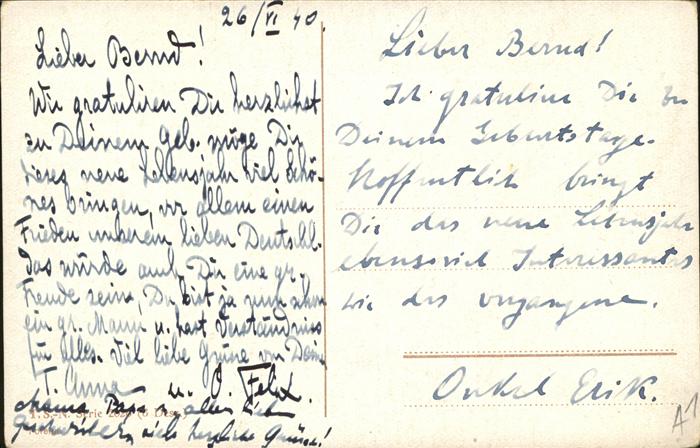 26/VI 40.
Lieber Bernd!
Wir gratuliren Dir herzlichst
zu Deinem Geb. möge Dir
dieses neue Lebensjahr viel Schö-
nes bringen, vor allem einen
Frieden unserem lieben Deutschl.
Das würde auch Dir eine gr.
Freude sein, Du bist ja nun schon
ein gr. Mann u. hast Verständniss
für alles. Viel liebe Grüsse von Deine
T. Anna u. O. Felix.
Mama Papa u. allen lieb
Geschwistern viele herzliche Grüsse!
Serie
Lieber Bernd!
Ich gratuliere Dir zu
Deinem Geburtstage.
Hoffentlich bringt
Dir das neue Lebensjahr
ebensoviel Interessantes
wie das vergangene.
Onkel Erik.
A1